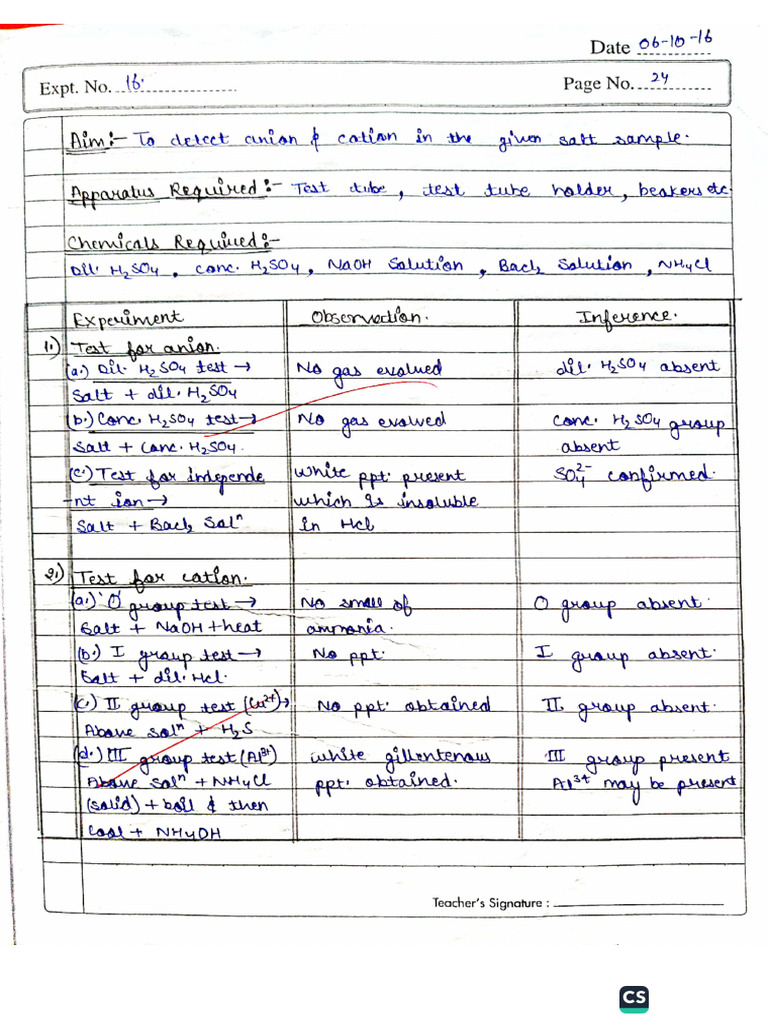 Date 06-10-16
Expt. No. 16.
Page No. 24
Aim:- To detect anion & cation in the given salt sample.
Apparatus Required:- Test tube, test tube holder, beakers etc.
Chemicals Required:-
Dil. H2SO4, Conc. H2SO4, NaOH Solution, Bacl2 Solution, NH4Cl
Experiment Observation. Inference.
1.) Test for anion.
(a.) Dil. H2SO4 test → No gas evolved dil. H2SO4 absent
Salt + dil. H2SO4
(b.) Conc. H2SO4 test → No gas evolved Conc. H2SO4 group
Salt + Conc. H2SO4. absent
(c.) Test for independe white ppt. present SO4^2- confirmed.
-nt ion → which is insoluble
Salt + Bacl2 Sol^n in Hcl
2.) Test for cation.
(a.) 'O' group test → No smell of O group absent.
Salt + NaOH + heat ammonia.
(b.) I group test → No ppt. I group absent.
Salt + dil. Hcl.
(c.) II group test (Cu^2+) → No ppt. obtained II group absent.
Above sol^n + H2S
(d.) III group test (Al^3+) white gillentenous III group present
Above sol^n + NH4Cl ppt. obtained. Al^3+ may be present
(solid) + boil & then
Cool + NH4OH
Teacher's Signature :
CS